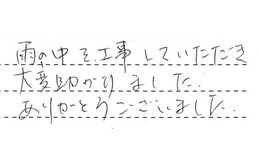 雨の中を工事していただき
大変助かりました.
ありがとうございました.